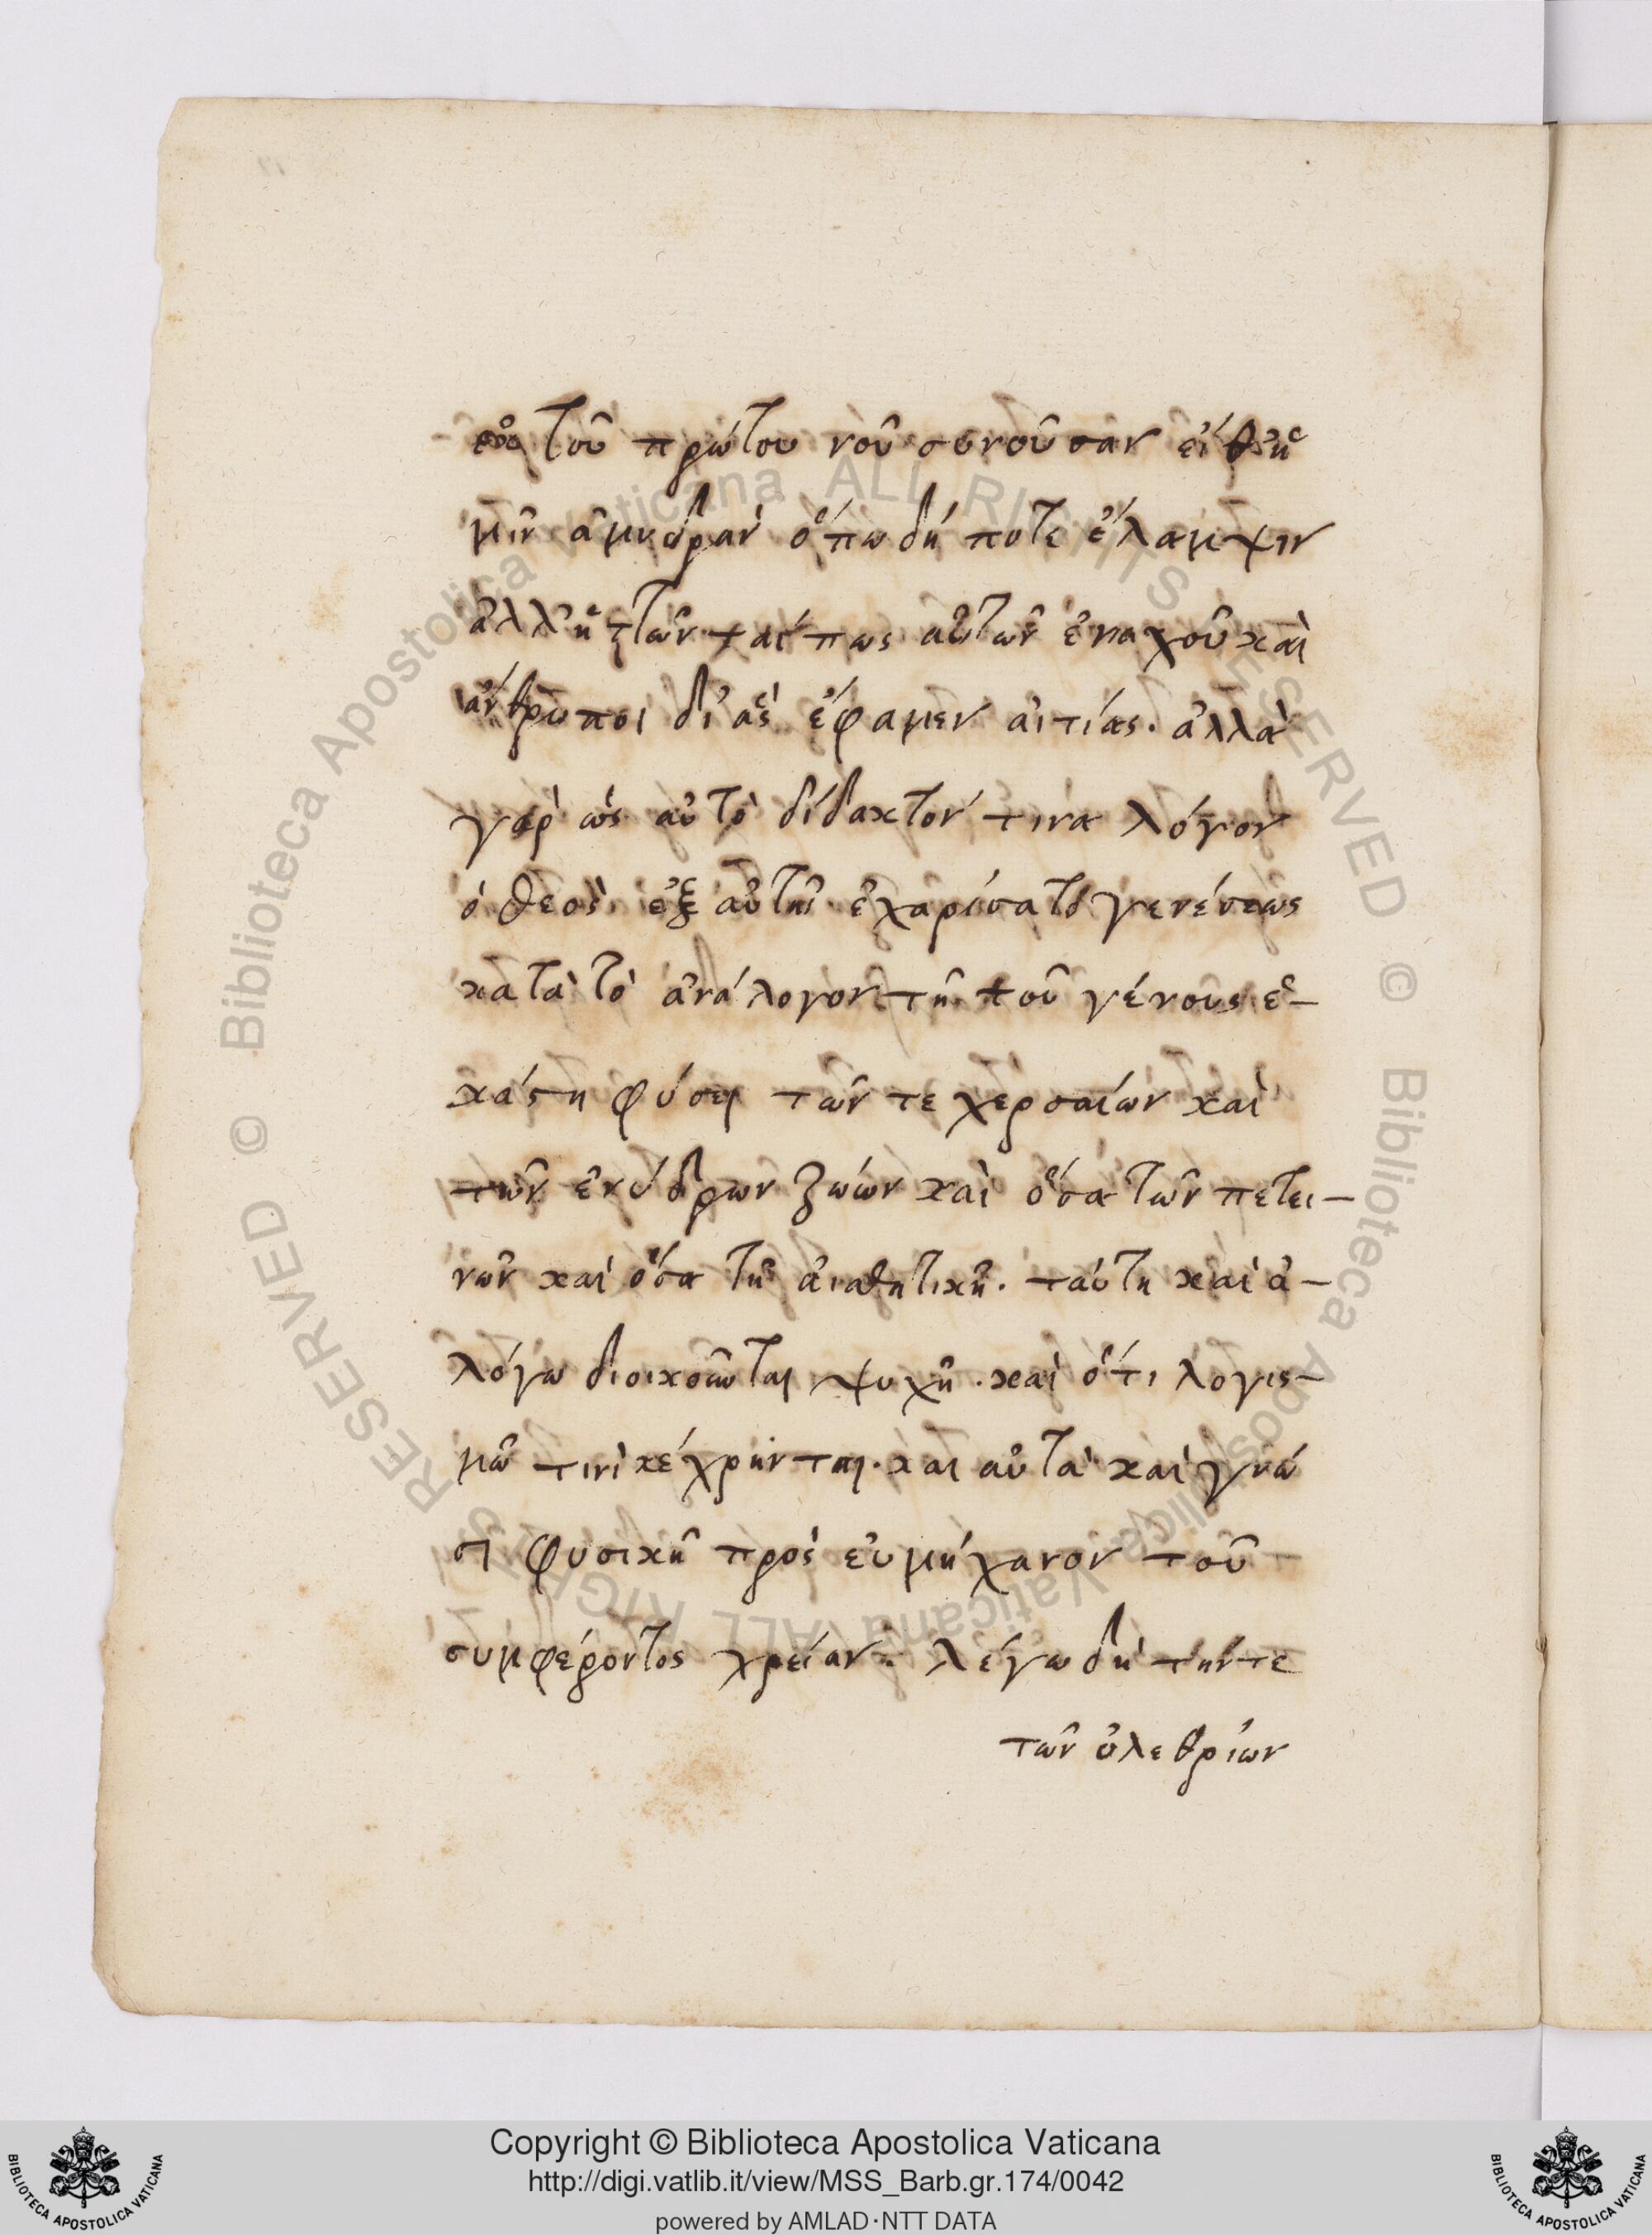 τοῦ πρώτου νοῦ συνοῦσαν εἰ θἡ
μὶν ἀμυδρὰν ὁπωδήποτε ἔλαμψιν
ἀλλ' ταί πως αὐτῶν ἐνιαχοῦ καὶ
ἄνθρωποι δι' ἃς ἔφαμεν αἰτίας. ἀλλὰ
γὰρ ὡς αὐτὸ δίδακτόν τινα λόγον
ὁ θεὸς ἐξ αὐτῆς ἐχαρίσατο γενέσεως
κατὰ τὸ ἀνάλογον τῆ τοῦ γένους ἑ-
κάστη φύσει τῶν τε χερσαίων καὶ
τῶν ἐνύδρων ζώων καὶ ὅσα τῶν πετει-
νῶν καὶ ὅσα τῆ αἰσθητικῆ. ταύτη καὶ ἀ-
λόγω διοικοῦνται ψυχῆ. καὶ ὅτι λογισ-
μῶ τινὶ κέχρηνται. καὶ αὐτὰ καὶ γνώ
σι φυσικῆ πρὸς εὐμήχανον τοῦ
συμφέροντος χρείαν. λέγω δὴ τήν τε
τῶν ὀλεθρίων
Copyright © Biblioteca Apostolica Vaticana
http://digi.vatlib.it/view/MSS_Barb.gr.174/0042
powered by AMLAD·NTT DATA
BIBLIOTECA APOSTOLICA VATICANA
BIBLIOTECA APOSTOLICA VATICANA
© Biblioteca Apostolica Vaticana ALL RIGHTS RESERVED
© Biblioteca Apostolica Vaticana ALL RIGHTS RESERVED